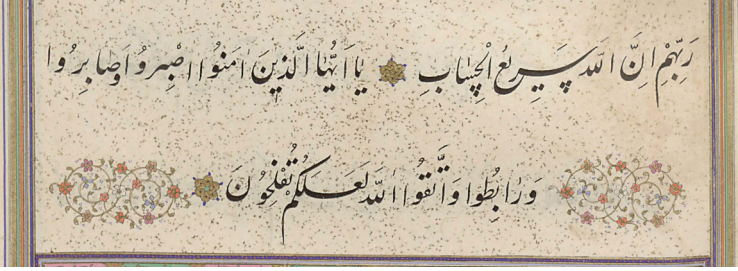 رَبِّهِمْ اِنَّ اللّٰهَ سَرِيعُ الْحِسَابِ يَا اَيُّهَا الَّذِينَ اٰمَنُوا اصْبِرُوا وَصَابِرُوا
وَرَابِطُوا وَاتَّقُوا اللّٰهَ لَعَلَّكُمْ تُفْلِحُونَ